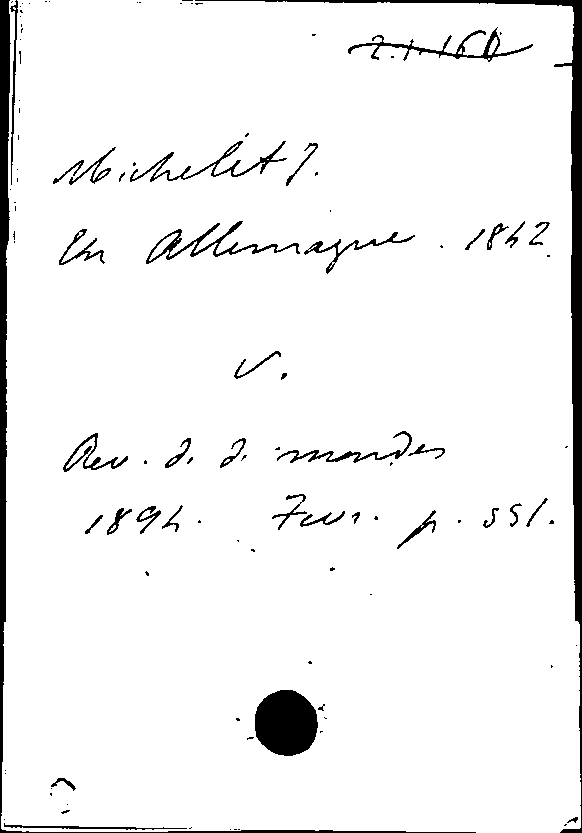 2.1.160
Michelet J.
En Allemagne. 1842.
V.
Rev. d. d. mondes
1894. Fevr. p. 551.